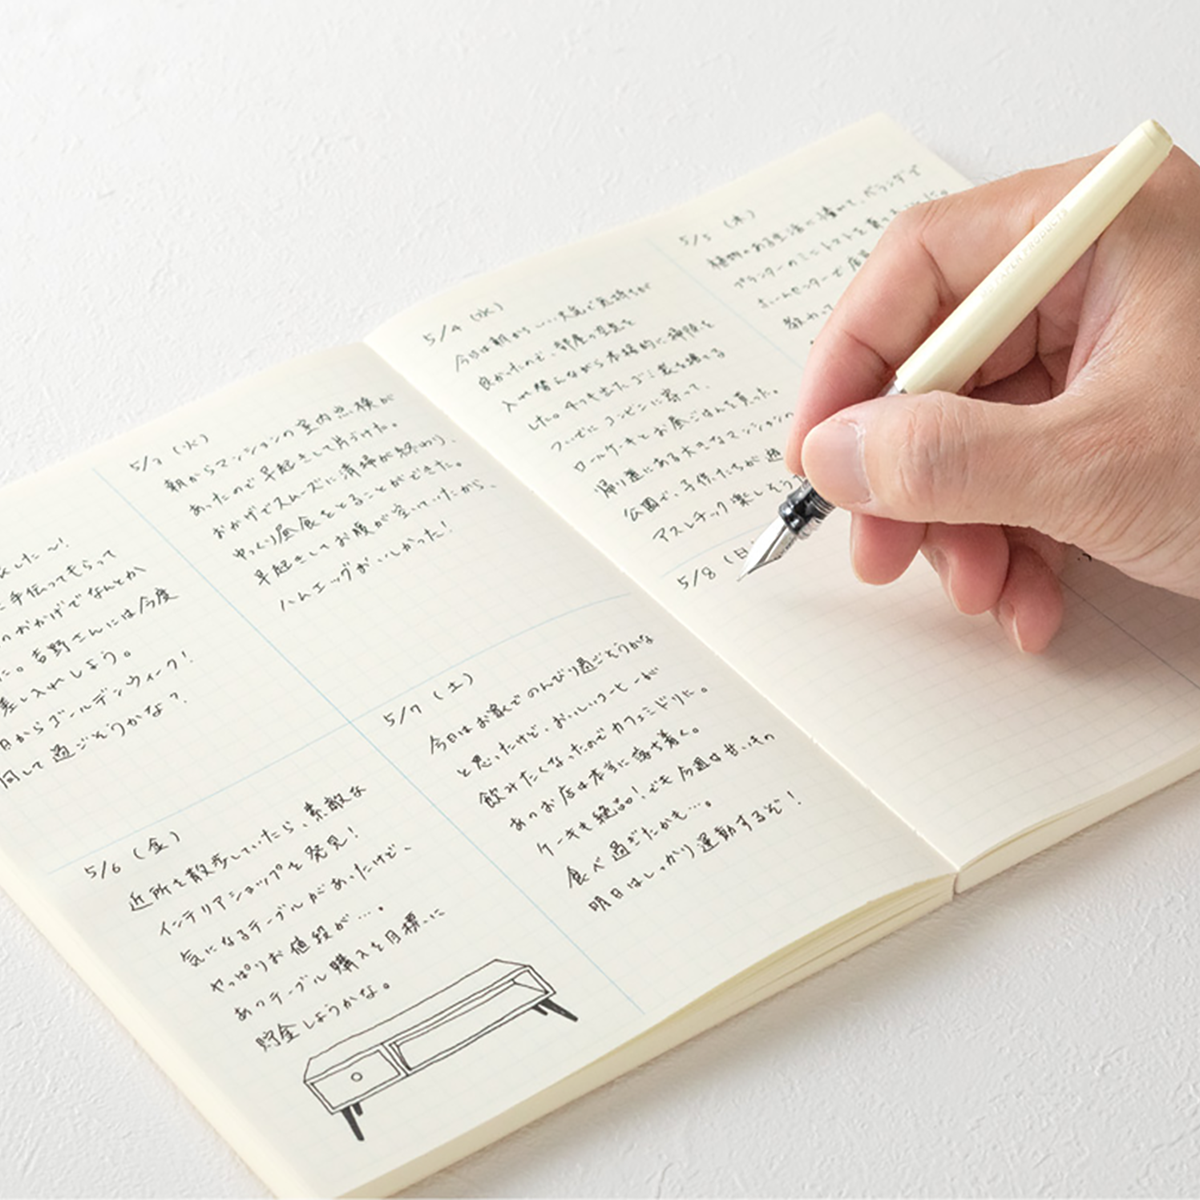 した〜!
手伝ってもらって
のおかげでなんとか
た。吉野さんには今度
差し入れしよう。
日からゴールデンウィーク!
何して過ごそうかな?
5/3 (火)
朝からマンションの室内点検が
あったので早起きして片づけた。
おかげでスムーズに清掃が終わり、
ゆっくり昼食をとることができた。
早起きしてお腹が空いていたから、
ハムエッグがおいしかった!
5/6 (金)
近所を散歩していたら、素敵な
インテリアショップを発見!
気になるテーブルがあったけど、
やっぱりお値段が…。
あのテーブル購入を目標に
貯金しようかな。
5/7 (土)
今日はお家でのんびり過ごそうかな
と思ったけど、おいしいコーヒーが
飲みたくなったのでカフェミドリに。
あのお店は本当に落ち着く。
ケーキも絶品!でも今週は甘いもの
食べ過ぎたかも…。
明日はしっかり運動するぞ!
5/4 (水)
今日は朝からいい天気で気持ちが
良かったので、部屋の空気を
入れ替えながら本格的に掃除を
した。出たゴミ袋を捨てる
ついでにコンビニに寄って、
ロールケーキとお昼ごはんを買った。
帰り道にある大きなマンションの
公園で、子供たちが遊
アスレチック楽しそう
5/5 (木)
植物のある生活に憧れて、ベランダで
プランターのミニトマトを育てる
ホームセンターで店員
教わって
5/8 (日